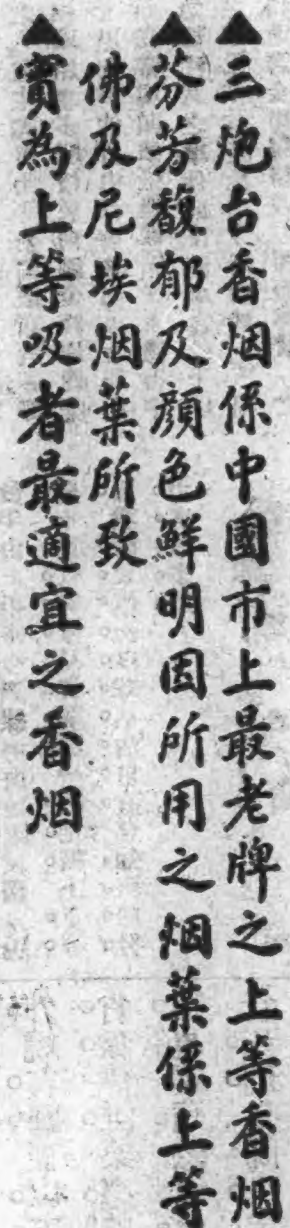 ▲三炮台香烟係中國市上最老牌之上等香烟
▲芬芳馥郁及顏色鮮明因所用之烟葉係上等
佛及尼埃烟葉所致
▲實為上等吸者最適宜之香烟